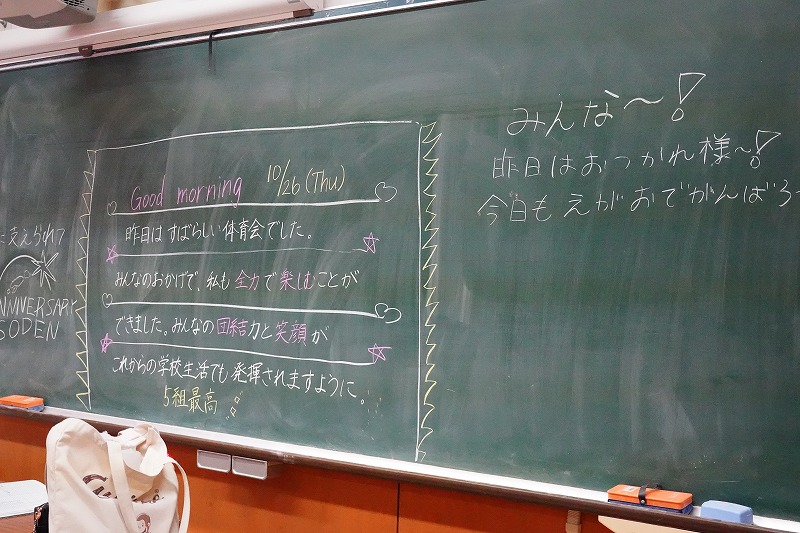 に支えられて
ANNIVERSARY
SODEN
Good morning 10/26 (Thu)
昨日はすばらしい体育会でした。
みんなのおかげで、私も全力で楽しむことが
できました。みんなの団結力と笑顔が
これからの学校生活でも発揮されますように。
5組最高
みんな〜!
昨日はおつかれ様〜!
今日もえがおでがんばろ